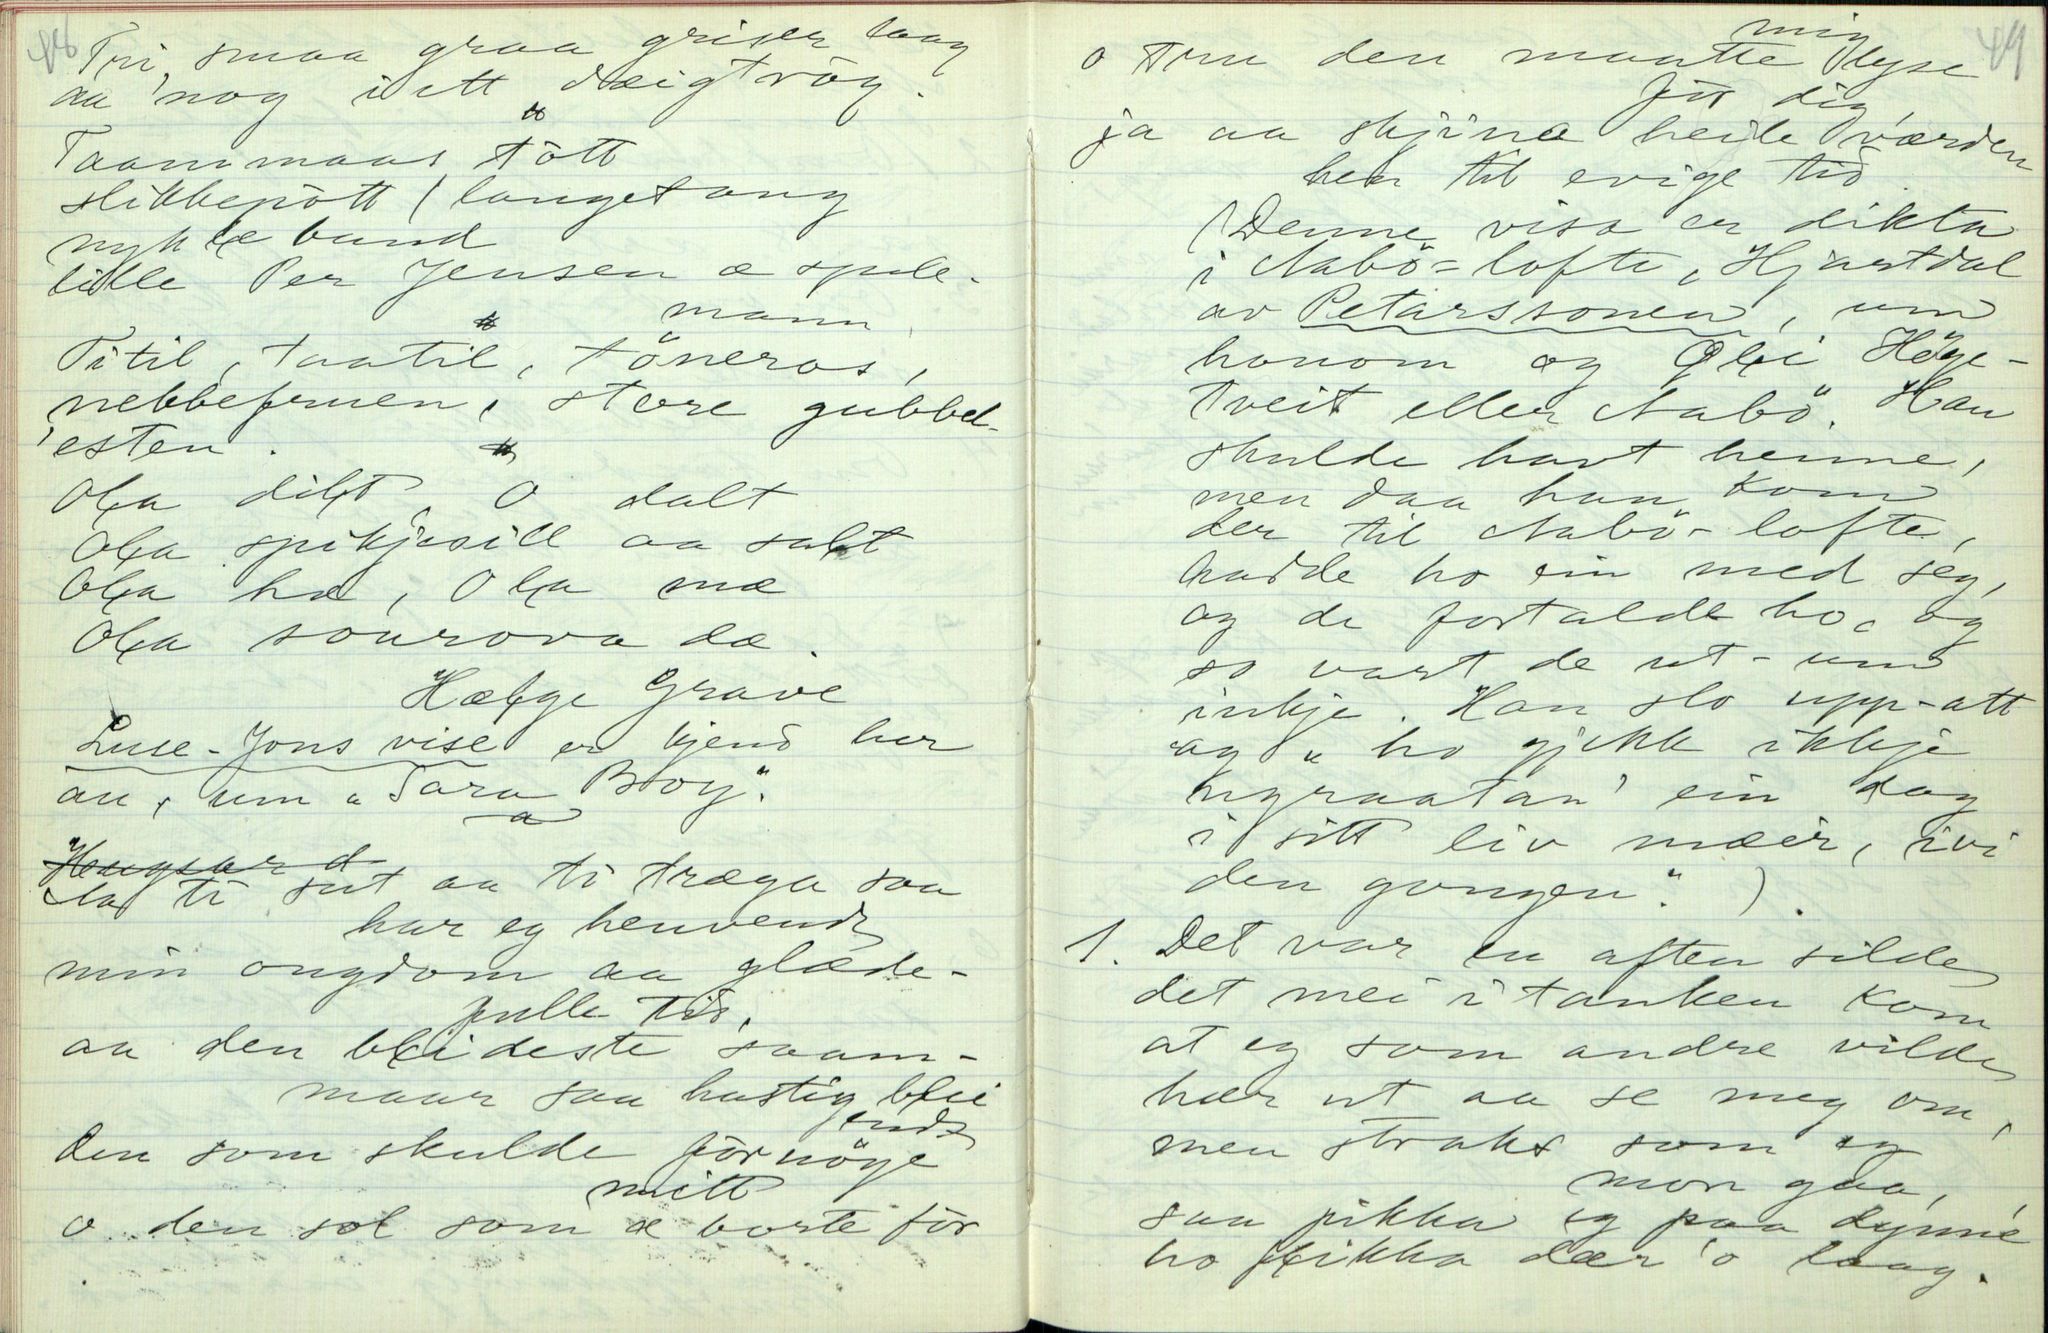 48
Tri, smaa graa griser laag
aa nog i ett dæigtrög.
Taammaas tött
slikkepött, langetang
nykle band
lille Per Jensen æ spele-
mann.
Titil, taatil, töneros,
nebbefruen, store gubbel-
esten.
Ola dilt, O dalt
Ola spikjesill aa salt
Ola hæ, Ola mæ
Ola sourova dæ.
Hælge Grave
Luse-Jons vise er kjend her
au, um "Sara Boy".
Hougsar d
Aa ti sut aa ti træga saa
har eg henvendt
min ongdom aa glæde-
fulle tid,
aa den bleideste saam-
maar saa hastig blei
endt
Den som skulde förnöge
mitt
o den sol som æ borte för
49
mig
o Tru den maatte lyse
för dig,
ja aa skjine heile værden
hen til evige tid.
(Denne visa er dikta
i Nabö-lofte, Hjartdal
av Petarssonen, um
honom og Olei Höge-
tveit eller Nabö. Han
skulde havt henne,
men daa han kom
der til Nabö-lofte,
hadde ho ein med seg,
og de fortalde ho, og
so vart de ut-um
inkje. Han slo upp-att
og "ho gjekk ikkje
ugraatan' ein dag
i sitt liv mæir, ivi
den gongen".).
1. Det var en aften silde
det mei i tanken kom
at eg som andre vilde
hær ut aa se meg om,
men straks som eg
mon gaa,
saa pikka eg paa dynne
ho flikka dær 'o laag.